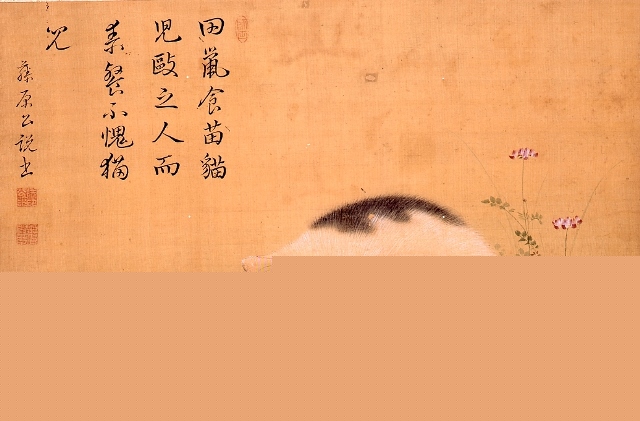 田鼠食苗貓
児毆之人而
素餐不愧猫
児
藤原公説書